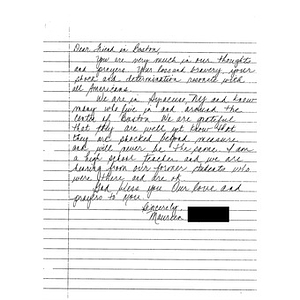 Dear Friend in Boston,
You are very much in our thoughts
and prayers. Your loss and bravery, your
and determination resonate with
all Americans.
We are in Syracuse, NY and know
many who live in and around the
center of Boston. We are grateful
that they are well yet know that
they are shocked beyond measure
and will never be the same. I am
a high school teacher and we are
hearing from our former students who
were there and are ok.
God bless you. Our love and
prayers to you.
Sincerely,
Maureen